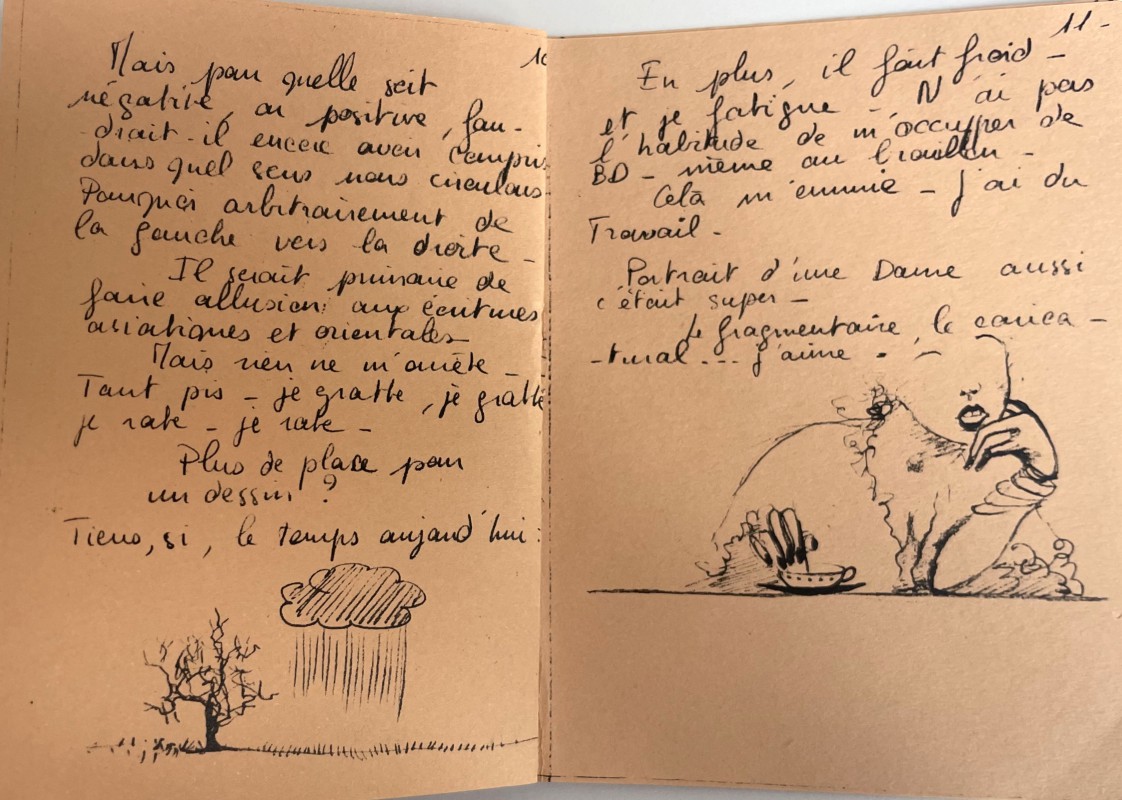 10
Mais pour quelle soit
négative, ou positive, fau-
-drait-il encore avoir compris
dans quel sens nous circulons-
Pourquoi arbitrairement de
la gauche vers la droite -
Il serait primaire de
faire allusion aux écritures
asiatiques et orientales
Mais rien ne m'arrête -
Tant pis - je gratte, je gratte
je rate - je rate -
Plus de place pour
un dessin ?
Tiens, si, le temps aujourd'hui :
11-
En plus, il fait froid -
et je fatigue - N'ai pas
l'habitude de m'occuper de
BD - même au brouillon -
Celà m'ennuie - J'ai du
Travail -
Portrait d'une Dame aussi
c'était super -
Le fragmentaire, le carica-
-tural... j'aime -